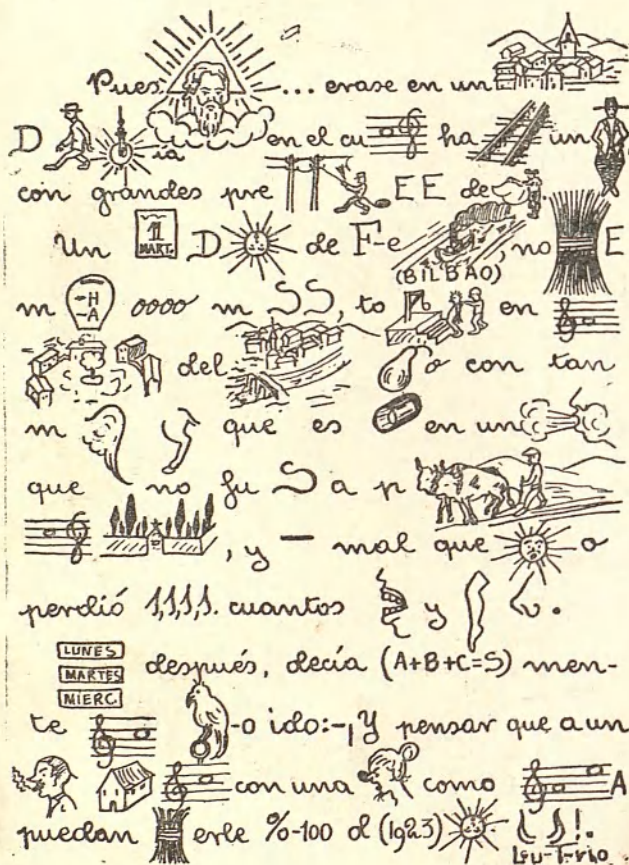 Pues ... erase en un
D ia en el cu ha un
con grandes pre EE de
Un 11 MART. D de F-e (BILBAO), no E
m -H -A oooo m SS, to en
del o con tan
m que es en un
que no fu S a p
, y - mal que o
perdió 1,1,1,1. cuantos y .
LUNES
MARTES
MIERC.
después, decía (A+B+C=S) men-
te -o ido:-¡Y pensar que a un
con una como A
puedan erle %-100 al (1923) !.